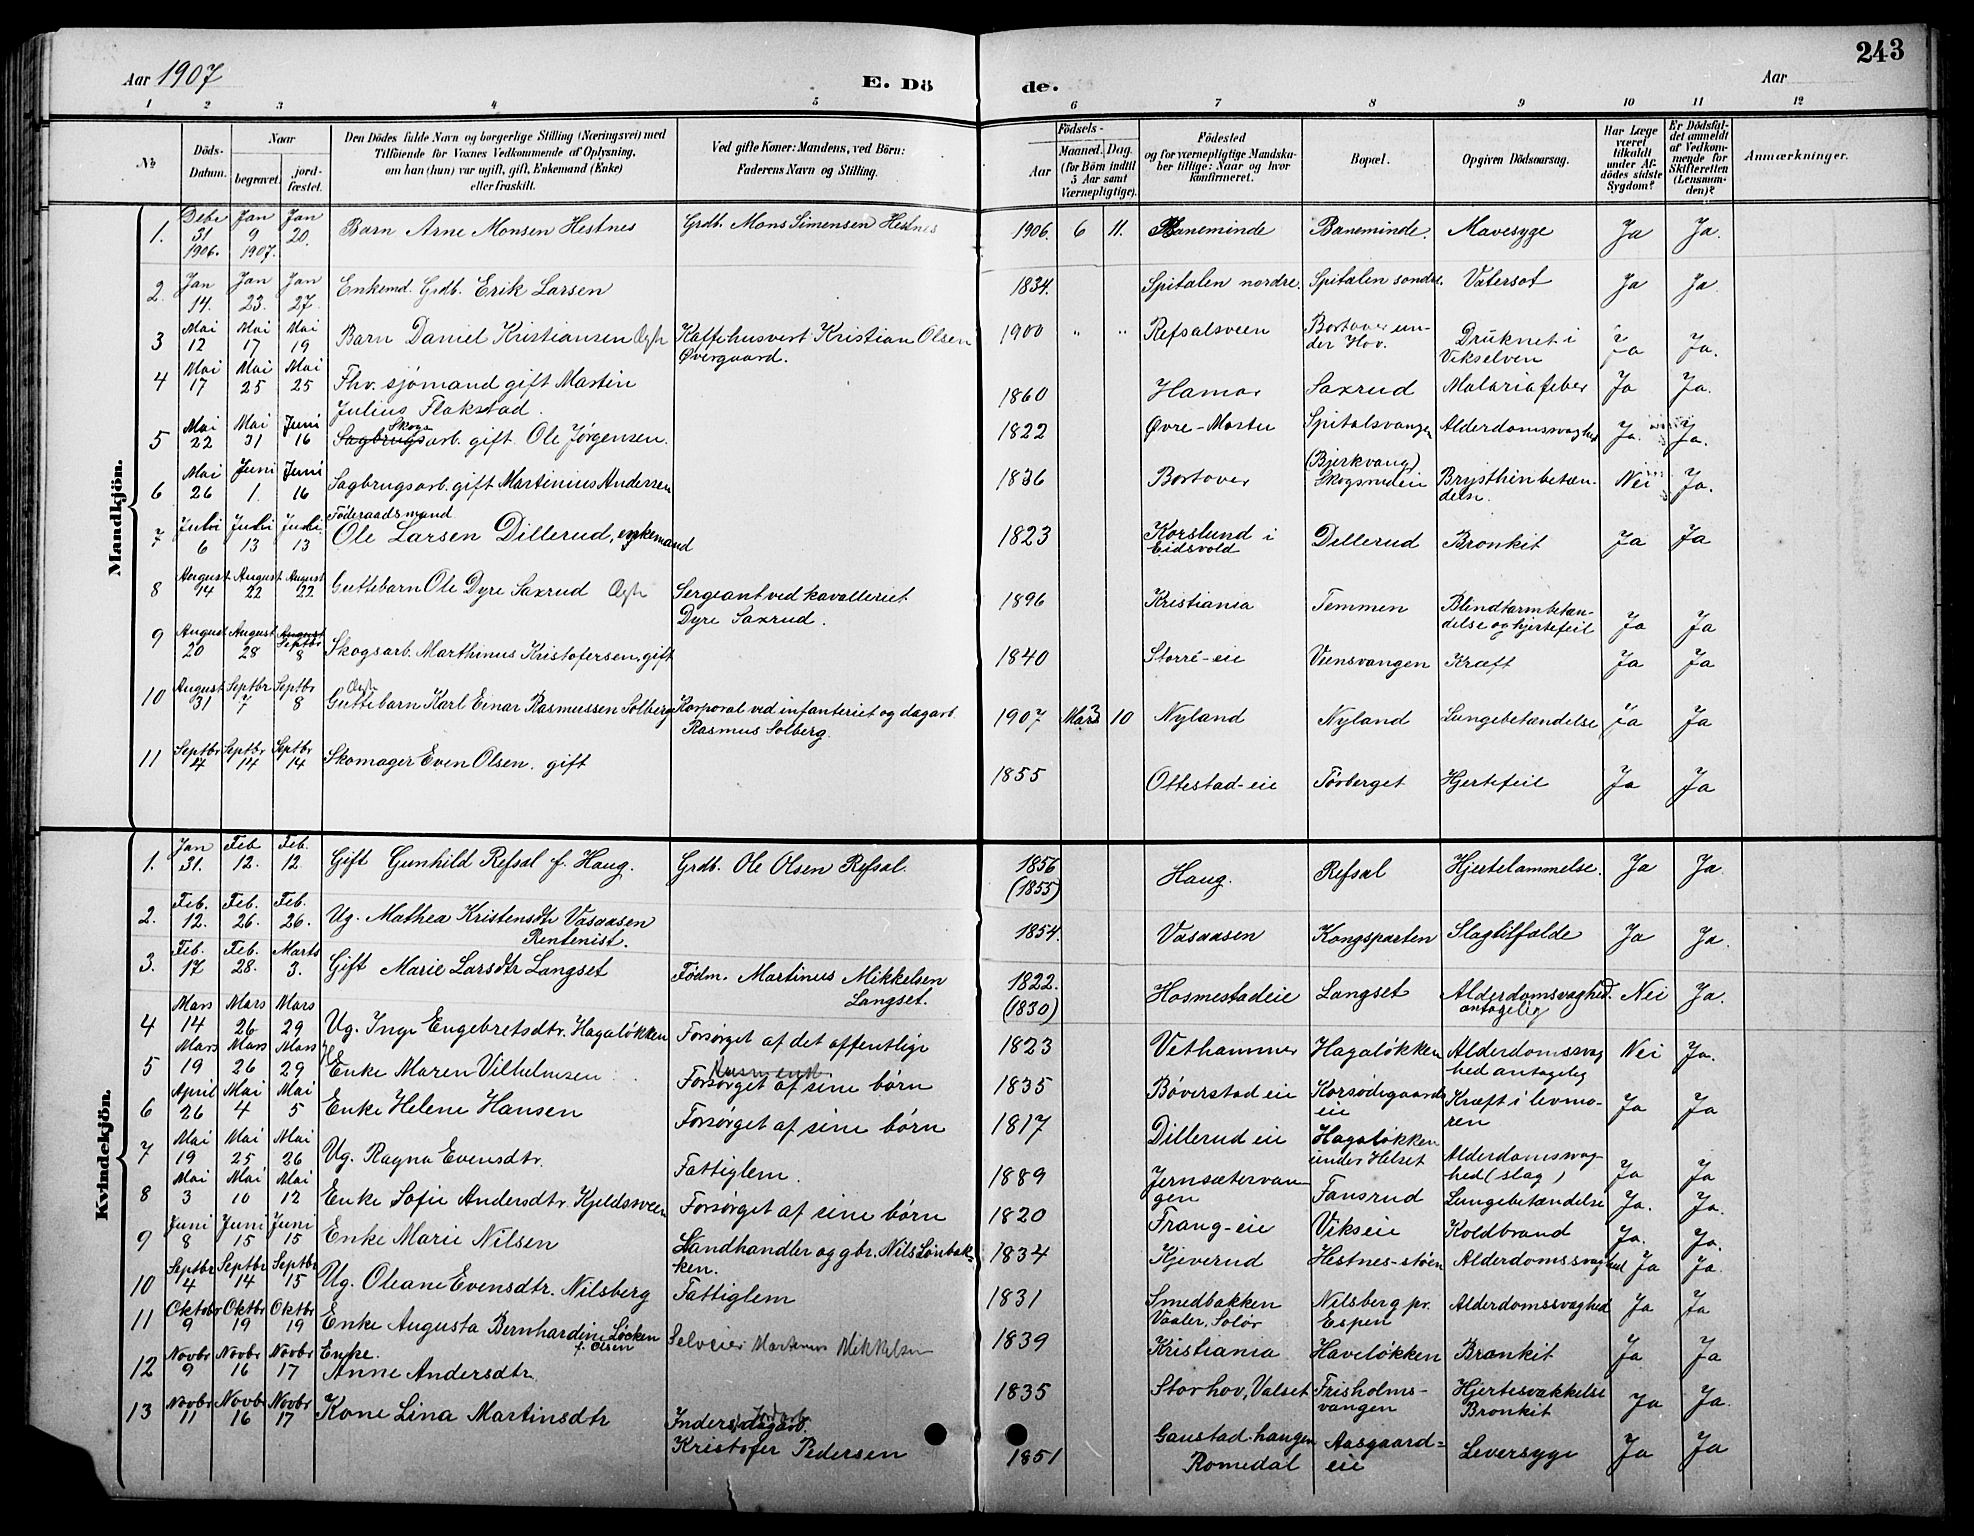 243
Aar 1907
E. Dö
de.
Aar
1 2 3 4 5 6 7 8 9 10 11 12
No
Döds-Datum.
Naar
begravet.
jordfæstet.
Den Dödes fulde Navn og borgerlige Stilling (Næringsvei) med
Tilföiende for Voxnes Vedkommende af Oplysning,
om han (hun) var ugift, gift, Enkemand (Enke)
eller fraskilt.
Ved gifte Koner: Mandens, ved Börn:
Faderens Navn og Stilling.
Födsels-
Aar
Maaned. Dag.
(for Börn indtil
5 Aar samt
Værnepligtige).
Födested
og for værnepligtige Mandska-
ber tillige: Naar og hvor
konfirmeret.
Bopæl.
Opgiven Dödsaarsag.
Har Læge
været
tilkaldt
under Af-
dödes sidste
Sygdom?
Er Dödsfal-
det anmeldt
af Vedkom-
mende for
Skifteretten
(Lensman-
den)?
Anmærkninger.
Mandkjön.
1. Debr 31 1906. Jan 9 1907. Jan 20. Barn Arne Monsen Hestnes Grdb. Mons Simensen Hestnes 1906. 6 11. Baneminde Baneminde. Mavesyge Ja Ja.
2. Jan 14. Jan 23. Jan 27. Enkemd. Grdb. Erik Larsen 1834. Spitalen nordre. Spitalen sondre. Vatersot Ja Ja.
3 Mai 12 Mai 17 Mai 19 Barn Daniel Kristiansen Ægte Kaffehusvert Kristian Olsen
Øvergaard. 1900 " " Refsalsveen Bortover un-
der Hov. Druknet i
Vikselven Ja Ja.
4 Mai 17 Mai 25 Mai 25 Fhv. sjömand gift Martin
Julius Flakstad. 1860 Hamar Saxrud Malariafeber Ja Ja.
5 Mai 22 Mai 31 Juni 16 Sagbrugsarb. Skogs gift. Ole Jørgensen. 1822 Øvre-Mostu Spitalsvangen Alderdomsvaghed Ja. Ja.
6 Mai 26 Juni 1. Juni 16 Sagbrugsarb. gift Martinius Andersen 1836 Bortover (Bjerkvang)
Skogsrudeie Brysthinbetæn-
delse. Nei Ja.
7 Juli 6 Juli 13 Juli 13 Föderaadsmand
Ole Larsen Dillerud, enkemand 1823 Korslund i
Eidsvold Dillerud Bronkit Ja Ja
8 August 14 August 22 August 22 Guttebarn Ole Dyre Saxrud Ægte Sergeant ved kavalleriet
Dyre Saxrud. 1896 Kristiania Temmen Blindtarmbetæn-
delse og hjertefeil Ja Ja
9 August 20 August 28 August Septbr 8 Skogsarb. Marthinus Kristofersen, gift 1840 Storre-eie Veensvangen Kræft Ja Ja
10 August 31 Septbr 7 Septbr 8 Ægte
Guttebarn Karl Einar Rasmussen Solberg Korporal ved infanteriet og dagarb.
Rasmus Solberg. 1907 Mars 3 10 Nyland Nyland Lungebetændelse Ja Ja
11 Septbr 4 Septbr 14 Septbr 14 Skomager Even Olsen. gift 1855 Ottestad-eie Tövberget Hjertefeil Ja Ja
Kvindekjön.
1. Jan 31. Feb 12. Feb. 12. Gift Gunhild Refsal f. Haug. Grdb. Ole Olsen Refsal. 1856
(1855) Haug. Refsal Hjertelammelse. Ja Ja.
2. Feb. 12. Feb. 26. Feb. 26. Ug. Mathea Kristensdtr Vasaasen
Rentenist. 1854. Vasaasen Kongsparten Slagtilfælde Ja Ja.
3. Feb. 17 Feb. 28. Marts 3. Gift Marie Larsdtr Langset Födm. Martinus Mikkelsen
Langset. 1822.
(1830) Hosmestadeie Langset Alderdomsvaghed.
antagelig Nei Ja.
4 Mars 14 Mars 26 Mars 29 Ug. Inge Engebretsdtr. Hagaløkken Forsørget af det offentlige 1823 Vethammer Hagaløkken Alderdomssvag
hed antagelig Nei Ja.
5 Mars 19 Mars 26 Mars 29 Enke Maren Vilhelmsen Forsørget af sine børn 1835 Böverstad eie Korsödegaards
eie Kræft i livmo-
ren Ja Ja
6 April 26 Mai 4 Mai 5 Enke Helene Hansen Forsørget af sine børn 1817 Dillerud eie Hagaløkken
under Helset Alderdomssvag-
hed (slag) Ja Ja
7 Mai 19 Mai 25 Mai 26 Ug. Ragna Evensdtr. Fattiglem. 1889 Jernsætervan-
gen Fansrud Lungebetændelse Ja. Ja.
8 Mai 3 Mai 10 Mai 12 Enke Sofie Andersdtr. Kjeldsveen Forsørget af sine børn 1820 Frang-eie Vikseie Koldbrand Ja. Ja.
9 Juni 8 Juni 15 Juni 15 Enke Marie Nilsen Landhandler og gbr. Nils Lønbak-
ken. 1834 Kjeverud Hestnes-støen Alderdomssvaghed Ja Ja.
10 Septbr 4 Septbr 14 Septbr 15 Ug. Oleane Evensdtr. Nilsberg Fattiglem 1831 Smedbakken
Vaaler, Solør Nilsberg pr.
Espen Alderdomssvaghed Ja Ja
11 Oktobr 9 Oktbr 19 Oktbr 19 Enke Augusta Bernhardine Løcken
f. Olsen Selveier Martinus Mikkelsen 1839 Kristiania Haveløkken Bronkit Ja Ja
12 Novbr 9 Novbr 16 Novbr 17 Enke.
Anne Andersdtr. 1835 Storhov, Valset Frisholms-
vangen Hjertesvækkelse
Bronkit Ja Ja.
13 Novbr 11 Novbr 16 Novbr 17 Kone Lina Martinsdtr Inderst,
Kristofer Pedersen 1851 Gaustad-hangen
Romedal Aasgaard-
eie Leversyge Ja Ja